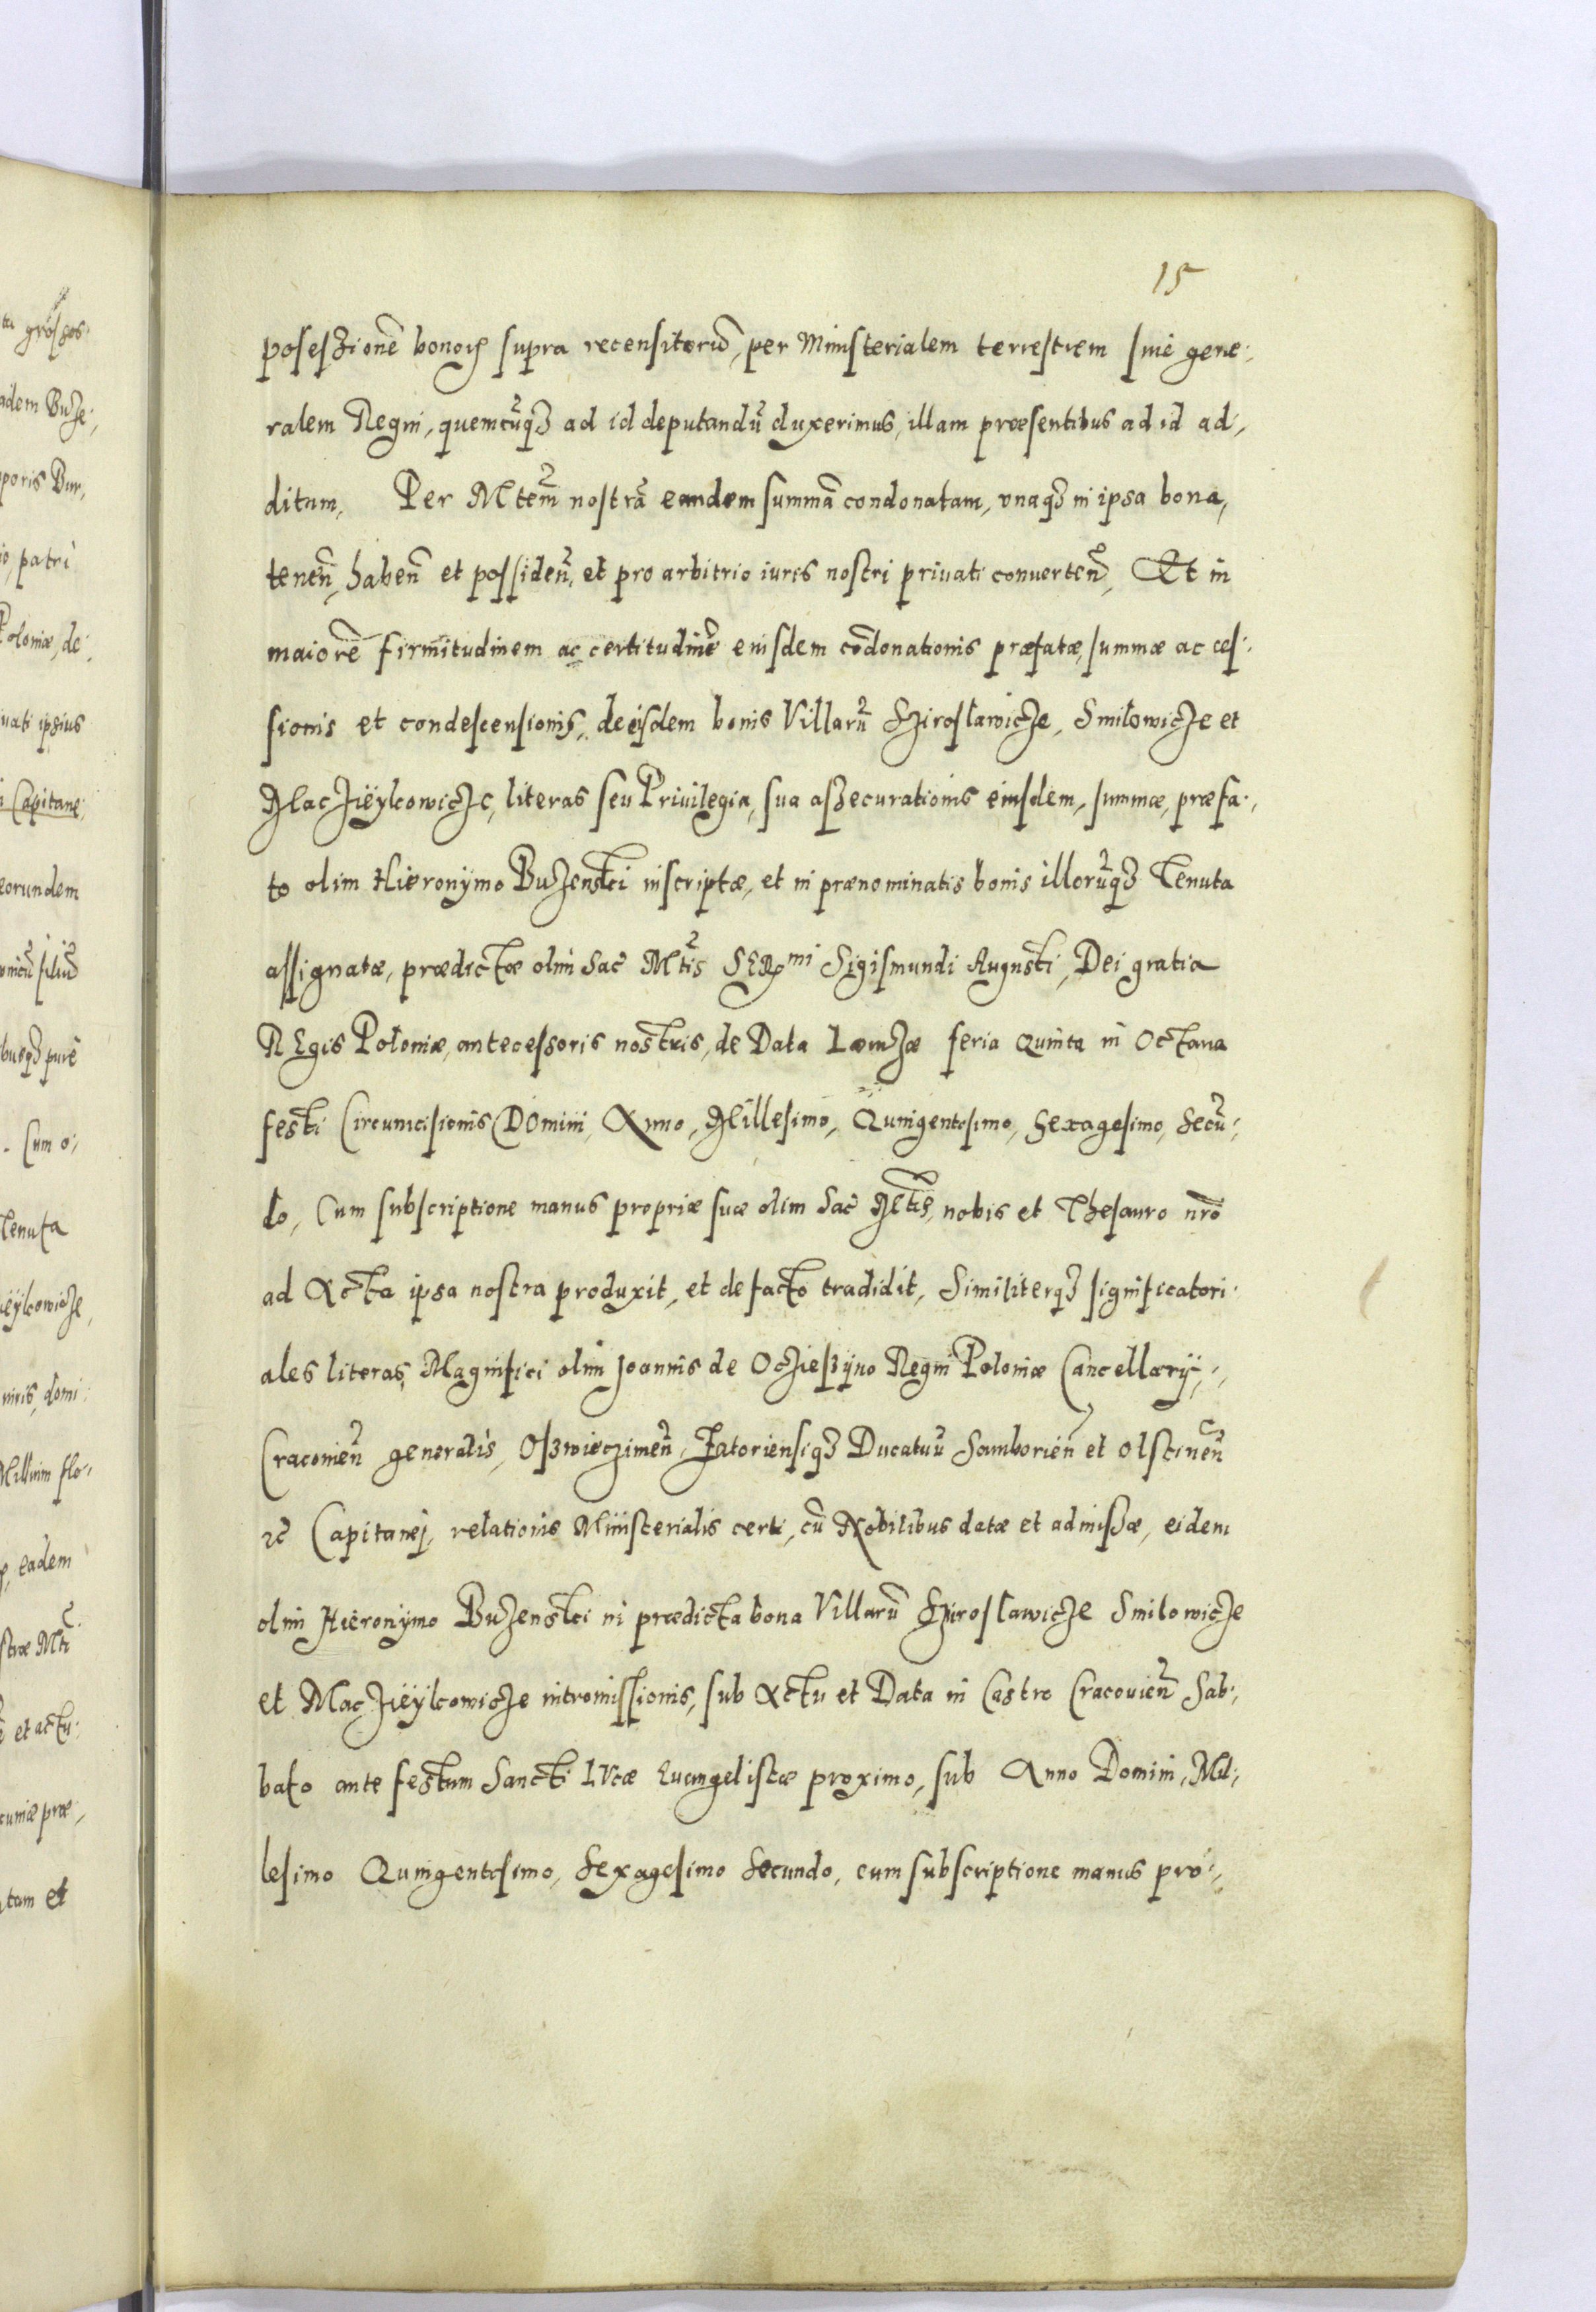 15
poseszionē bonoꝝ supra recensitorū, per Ministerialem terrestrem siue gene:
ralem Regni, quemcūqȝ ad id deputandū duxerimus, illam præsentibus ad id ad,
ditum, Per Mtem̄ nostrā eandem summā condonatam, vnaqȝ in ipsa bona,
tenen̄, haben̄ et possiden̄, et pro arbitrio iuris nostri priuati conuerten̄, Et in
maiorē firmitudinem ac certitudinē eiusdem cōdonationis præfatæ, summæ ac ces:
sionis et condescensionis, de eisdem bonis Villarū Sziroslawicze, Smilowicze et
Maczieÿkowicze, literas seu Priuilegia, sua aszecurationis eiusdem, summæ, præfa:,
to olim Hieronymo Buzenski inscriptæ, et in prænominatis bonis illorūqȝ Tenuta
assignatæ, prædictæ olim Sac̄ Mtis̄ SERmi Sigismundi Augusti, Dei gratia
REgis Poloniæ, antecessoris nostris, de Data Lomzæ feria Quinta in Octaua
festi Circumcisionis DOmini, Anno, Millesimo, Quingentesimo, Sexagesimo, Secū:
do, Cum subscriptione manus propriæ suæ olim Sac̄ Mtis, nobis et Thesauro nr̄o
ad Acta ipsa nostra produxit, et de facto tradidit, Similiterqȝ significatori:
ales literas, Magnifici olim Joannis de Ocziesżyno Regni Poloniæ Cancellarÿ,:,
Cracouien̄ generalis, Oszwieczimen̄, Zatoriensiqȝ Ducatuū Samborien̄ et Olstinen̄
rc̄ Capitanej, relationis Ministerialis certi, cū Nobilibus datæ et admiszæ, eidem
olim Hieronymo Buzenski in prædicta bona Villarū Sziroslawicze Smilowicze
et Maczieÿkowicze intromissionis, sub Actu et Data in Castro Cracouien̄ Sab:,
bato ante festum Sancti LVcæ Euangelistæ proximo, sub Anno Domini, Mil:,
lesimo Quingentesimo, Sexagesimo Secundo, cum subscriptione manus pro:,